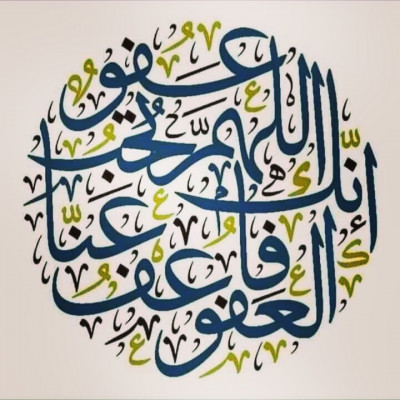 اللهم إنك عفو تحب العفو فاعف عنا